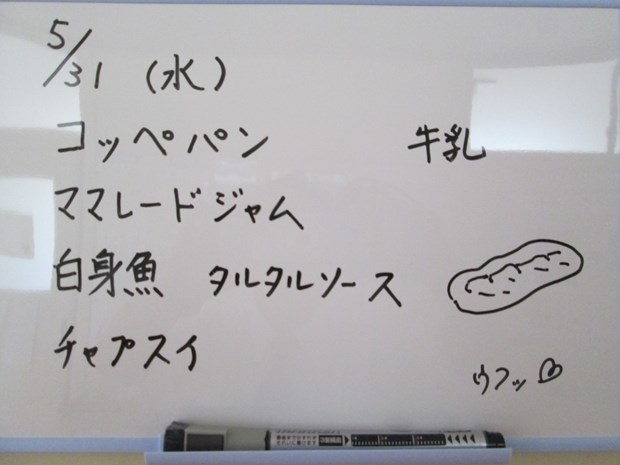 5/31 (水)
コッペパン 牛乳
ママレードジャム
白身魚 タルタルソース
チャプスイ
ウフッ♡